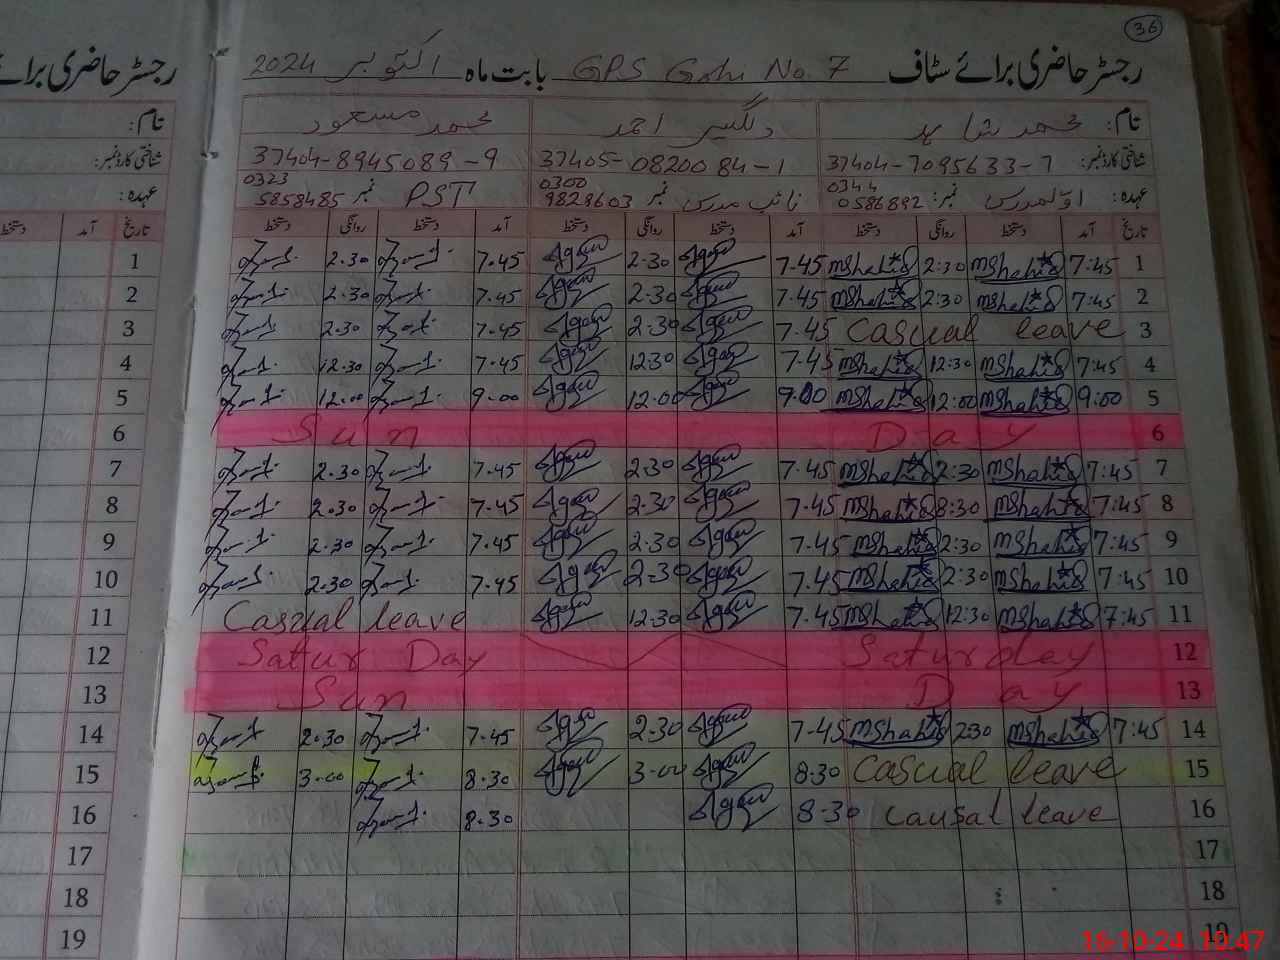 36
رجسٹر حاضری برائے سٹاف GPS Gahi No. 7 بابت ماہ اکتوبر 2024
رجسٹر حاضری برائے
نام: محمد شاہد دستگیر احمد محمد مسعود
نام:
شناختی کارڈ نمبر: 37404-7095633-7 37405-0820084-1 37404-8945089-9
شناختی کارڈ نمبر:
عہدہ: اوّل مدرس نمبر: 0344 0586892 نائب مدرس نمبر 0300 9828603 PST نمبر 0323 5858485
عہدہ:
تاریخ آمد دستخط روانگی دستخط آمد دستخط روانگی دستخط آمد دستخط روانگی دستخط
تاریخ آمد دستخط
1 7:45 MShahid 2:30 MShahid 7.45 2.30 7.45 2.30 1
2 7:45 MShahid 2:30 MShahid 7.45 2.30 7.45 2.30 2
3 Casual leave 7.45 2.30 7.45 2.30 3
4 7:45 MShahid 12:30 MShahid 7.45 12.30 7.45 12.30 4
5 9:00 MShahid 12:00 MShahid 9.00 12.00 9.00 12.00 5
Sun Day 6
6
7 7:45 MShahid 2:30 MShahid 7.45 2.30 7.45 2.30 7
8 7:45 MShahid 8:30 MShahid 7.45 2.30 7.45 2.30 8
9 7:45 MShahid 2:30 MShahid 7.45 2.30 7.45 2.30 9
10 7:45 MShahid 2:30 MShahid 7.45 2.30 7.45 2.30 10
11 7:45 MShahid 12:30 MShahid 7.45 12.30 Casual leave 11
12 Saturday Satur Day 12
Sun Day 13
13
14 7:45 MShahid 2:30 MShahid 7.45 2.30 7.45 2.30 14
15 Casual leave 8.30 3.00 8.30 3.00 15
16 Causal leave 8.30 8.30 16
17 17
18 18
19 19
16-10-24 10:47